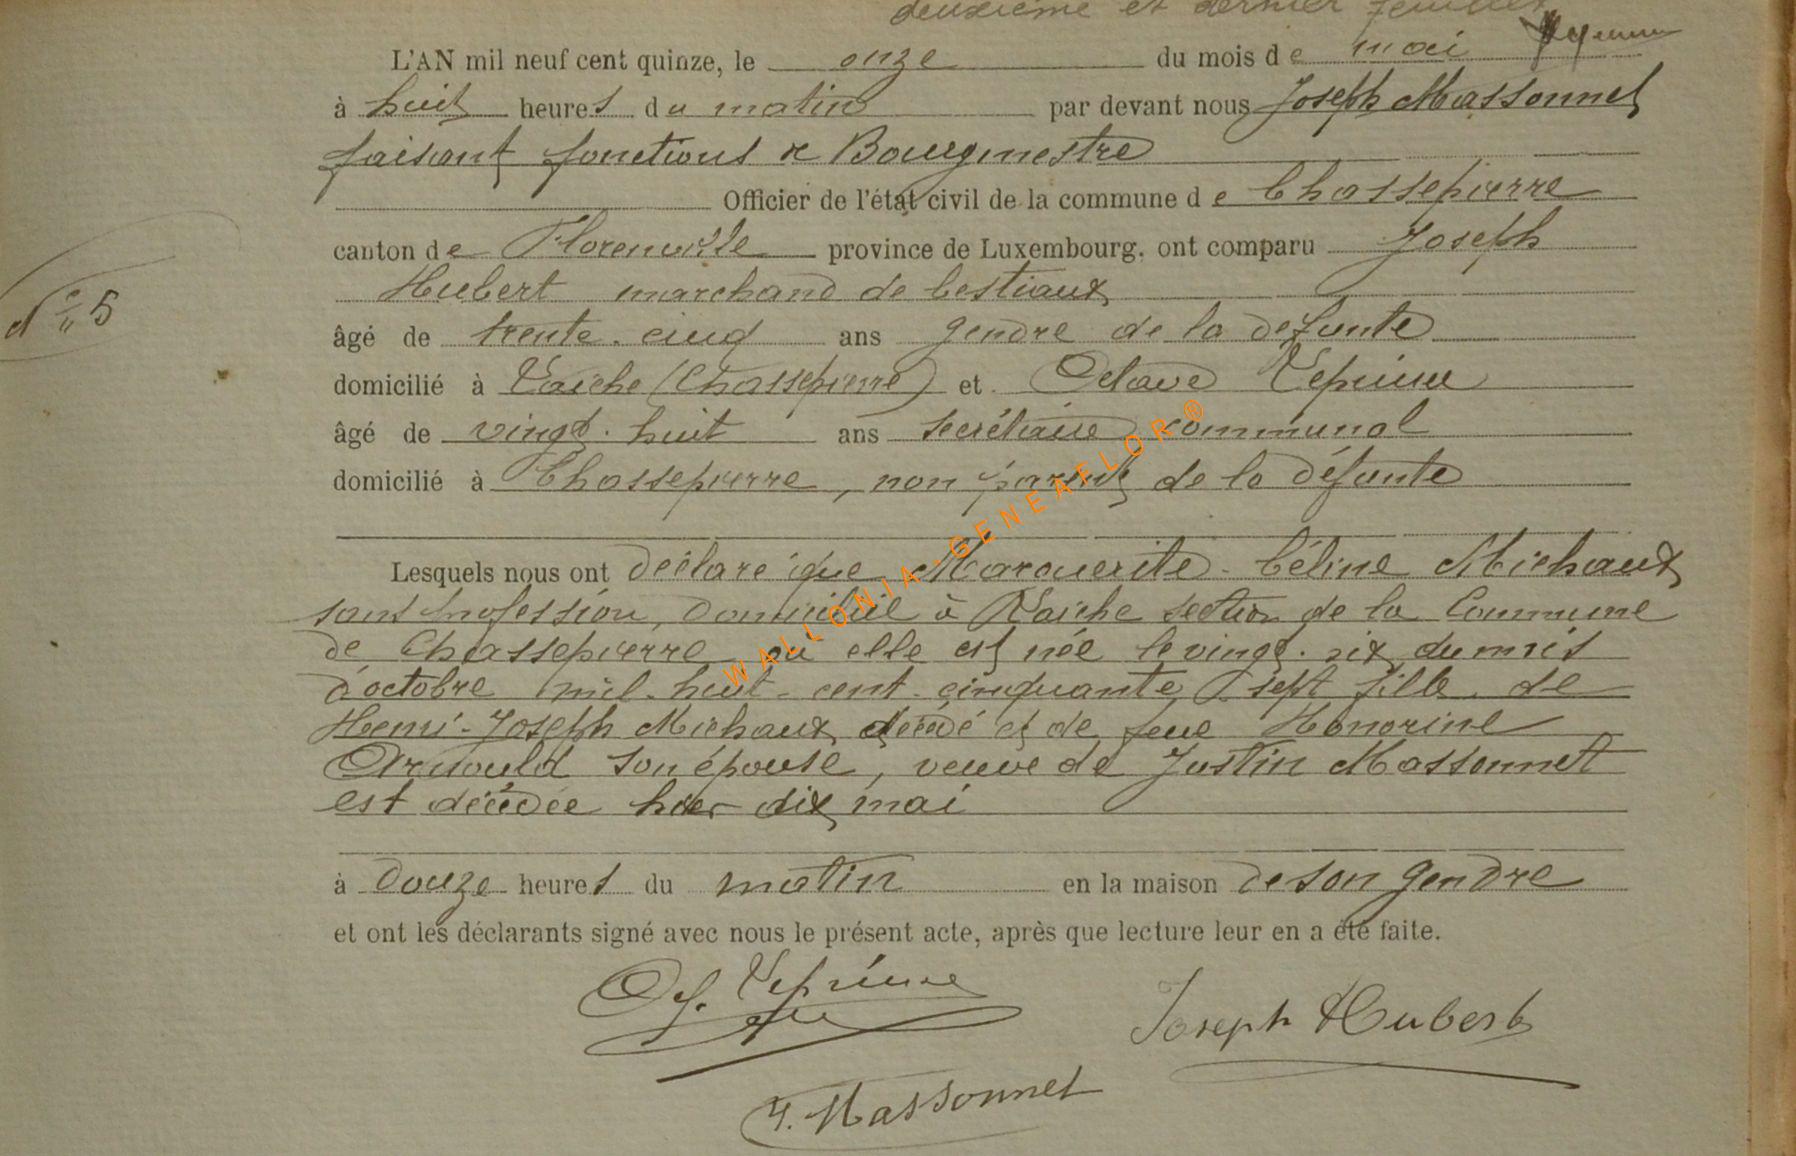 deuxième et dernier feuillet
L'AN mil neuf cent quinze, le onze du mois de mai
à huit heures du matin par devant nous Joseph Massonnet
faisant fonctions de Bourgmestre
Officier de l'état civil de la commune de Chassepierre
canton de Florenville province de Luxembourg, ont comparu Joseph
Hubert marchand de bestiaux
N° 5
âgé de trente-cinq ans gendre de la défunte
domicilié à Laiche (Chassepierre) et Octave
âgé de vingt-huit ans secrétaire communal
domicilié à Chassepierre, non parent de la défunte
Lesquels nous ont déclaré que Marguerite-Céline Michaux
sans profession, domiciliée à Laiche section de la Commune
de Chassepierre où elle est née le vingt-six du mois
d'octobre mil-huit-cent-cinquante sept fille de
Henri-Joseph Michaux décédé et de feue Honorine
Arnould son épouse, veuve de Justin Massonnet
est décédée hier dix mai
à douze heures du matin en la maison de son gendre
et ont les déclarants signé avec nous le présent acte, après que lecture leur en a été faite.
Joseph Hubert
J. Massonnet
WALLONIA-GENEAFLOR®